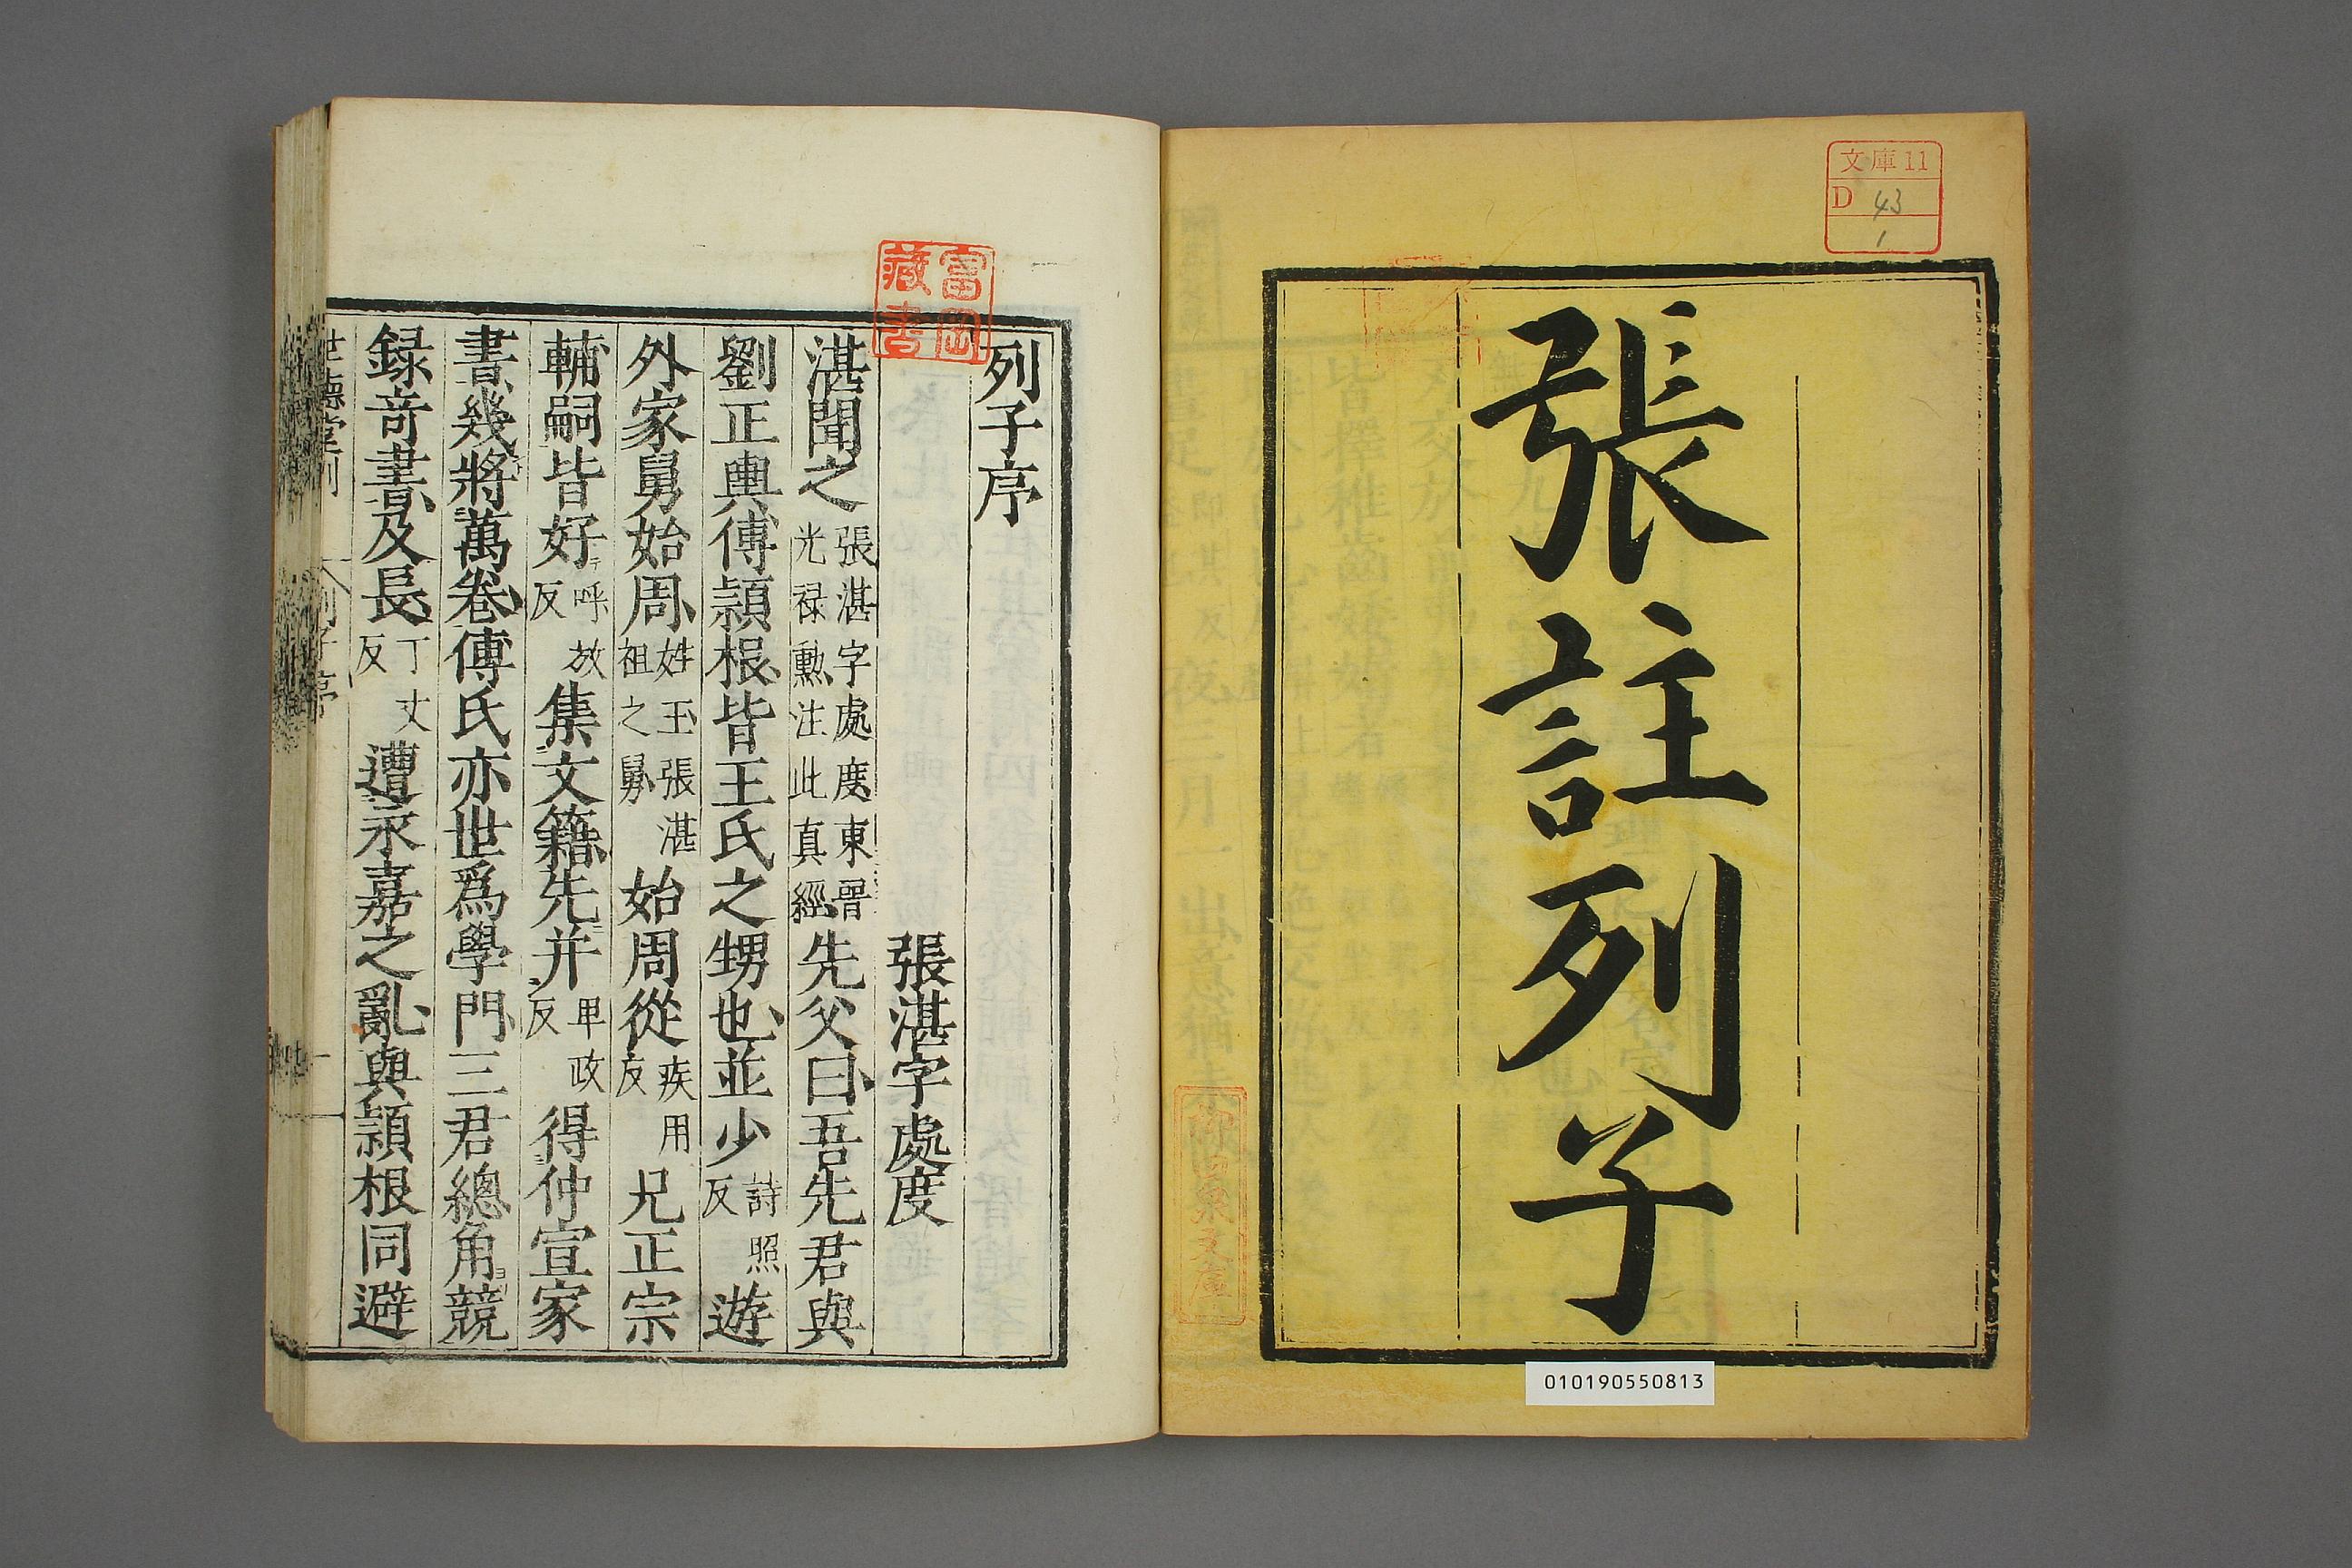 文庫11
D 43
1
張註列子
010190550813
富岡
藏書
列子序
張湛字處度
湛聞之張湛字處度東晉光禄勲注此真經先父曰吾先君與
劉正輿傅頴根皆王氏之甥也並少詩照反遊
外家舅始周姓王張湛祖之舅始周從疾用反兄正宗
輔嗣皆好呼故反集文籍先并卑政反得仲宣家
書幾將萬卷傅氏亦世爲學門三君總角競
録竒書及長丁丈反遭永嘉之亂與頴根同避